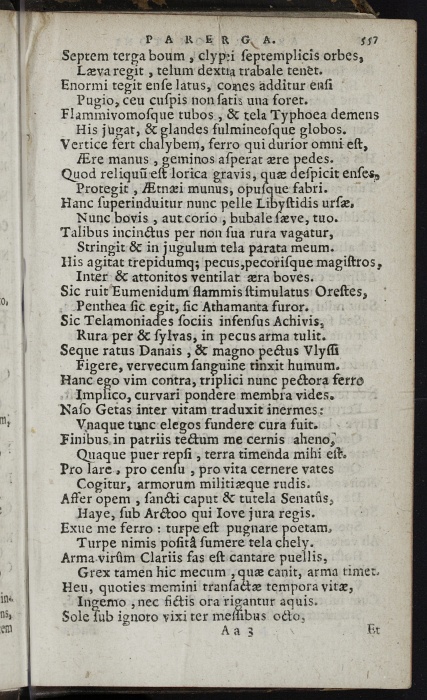 PARERGA. 557
Septem terga boum, clypei septemplicis orbes,
Læva regit, telum dextra trabale tenet.
Enormi tegit ense latus, comes additur ensi
Pugio, ceu cuspis non satis una foret.
Flammivomosque tubos, & tela Typhoea demens
His jugat, & glandes fulmineosque globos.
Vertice fert chalybem, ferro qui durior omni est,
Ære manus, geminos asperat ære pedes.
Quod reliquū est lorica gravis, quæ despicit enses,
Protegit, Ætnæi munus, opusque fabri.
Hanc superinduitur nunc pelle Libystidis ursæ,
Nunc bovis, aut corio, bubale sæve, tuo.
Talibus incinctus per non sua rura vagatur,
Stringit & in jugulum tela parata meum.
His agitat trepidumq; pecus, pecorisque magistros,
Inter & attonitos ventilat æra boves.
Sic ruit Eumenidum flammis stimulatus Orestes,
Penthea sic egit, sic Athamanta furor.
Sic Telamoniades sociis infensus Achivis,
Rura per & sylvas, in pecus arma tulit.
Seque ratus Danais, & magno pectus Vlyssi
Figere, vervecum sanguine tinxit humum.
Hanc ego vim contra, triplici nunc pectora ferro
Implico, curvari pondere membra vides.
Naso Getas inter vitam traduxit inermes:
Vnaque tunc elegos fundere cura fuit.
Finibus in patriis tectum me cernis aheno,
Quaque puer repsi, terra timenda mihi est.
Pro lare, pro censu, pro vita cernere vates
Cogitur, armorum militiæque rudis.
Affer opem, sancti caput & tutela Senatûs,
Haye, sub Arctoo qui Iove jura regis.
Exue me ferro: turpe est pugnare poetam,
Turpe nimis positâ sumere tela chely.
Arma virûm Clariis fas est cantare puellis,
Grex tamen hic mecum, quæ canit, arma timet.
Heu, quoties memini transactæ tempora vitæ,
Ingemo, nec fictis ora rigantur aquis.
Sole sub ignoto vixi ter messibus octo,
Aa 3 Et